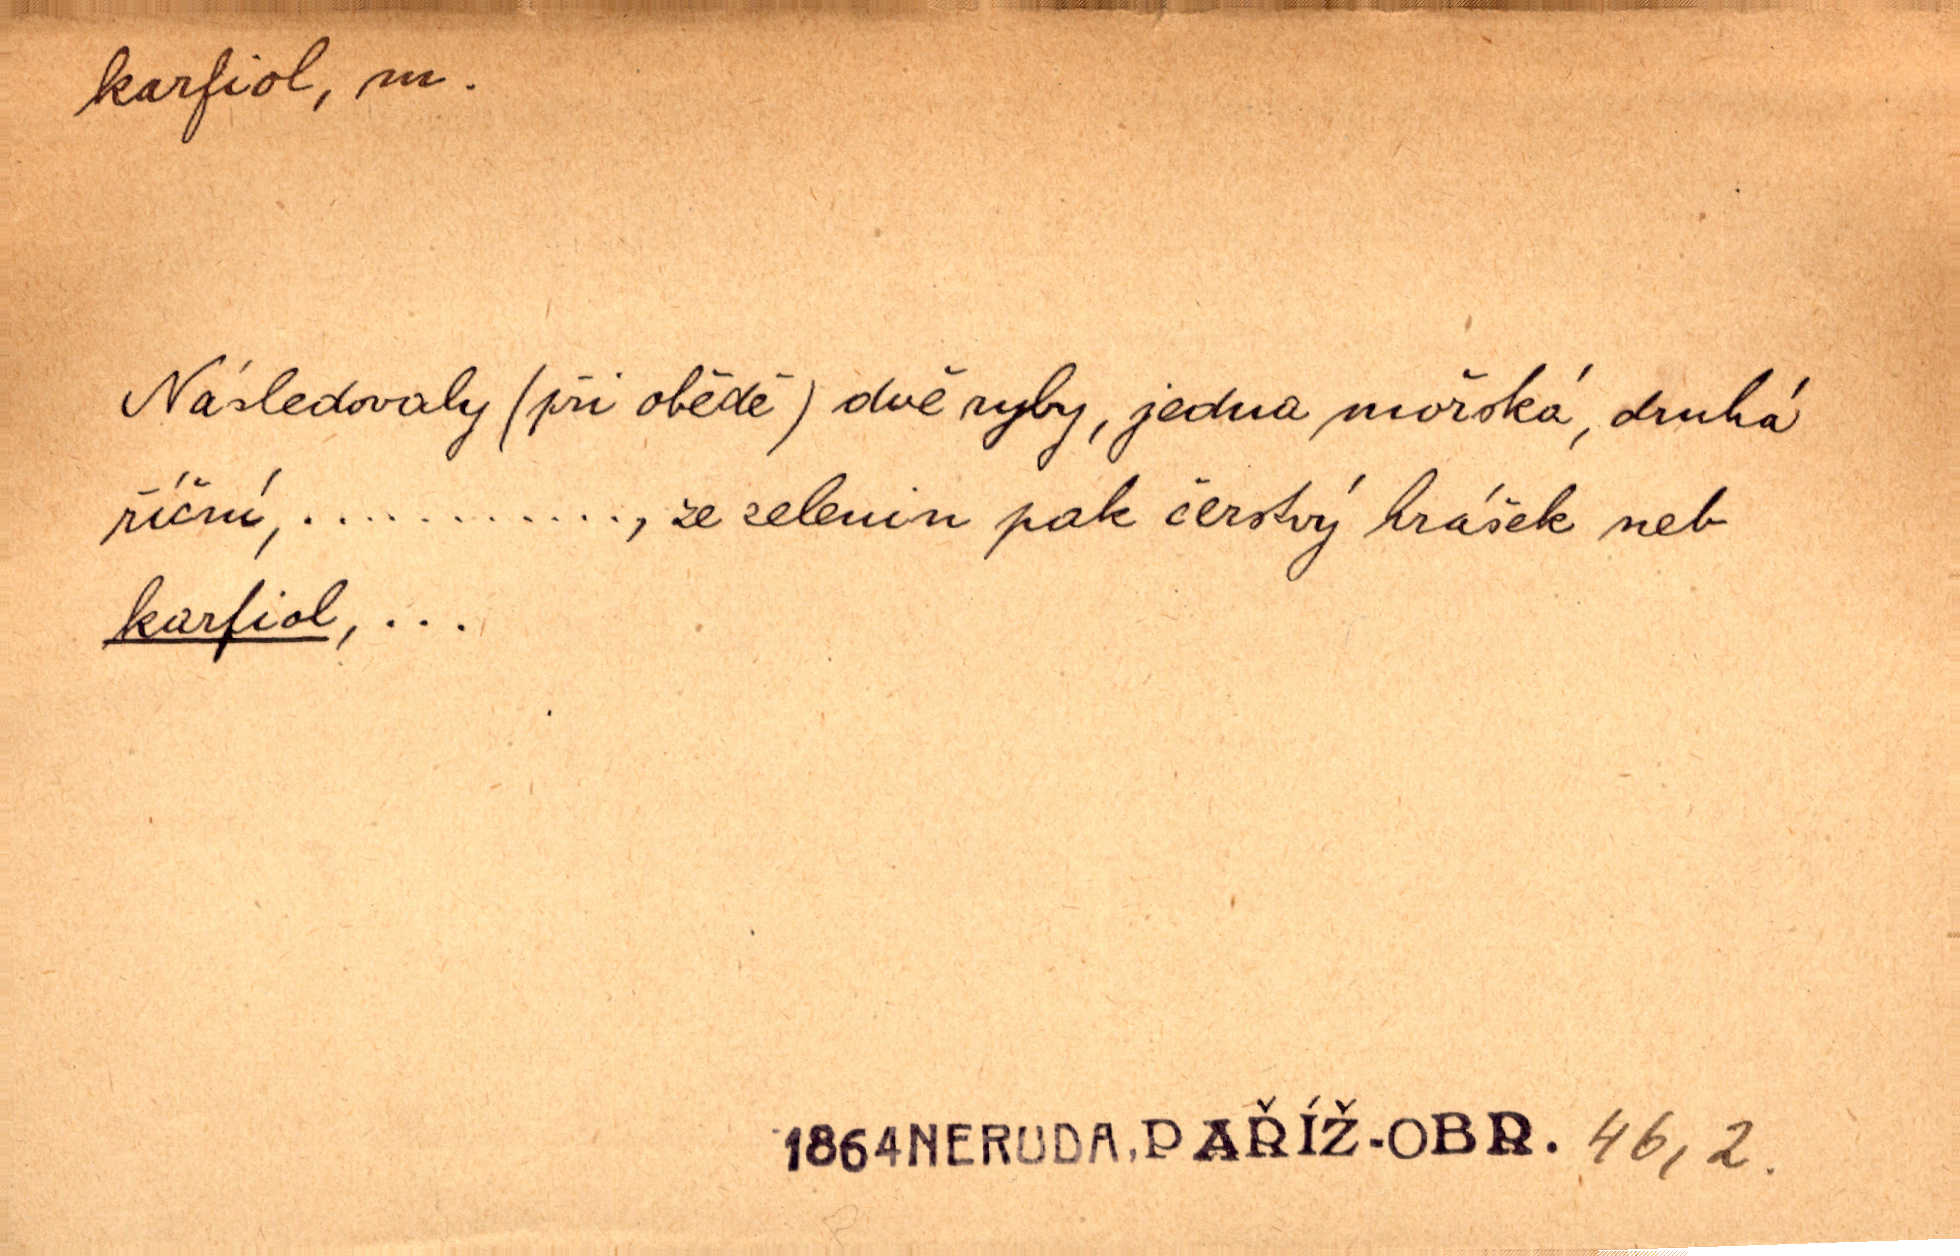 karfiol, m.
Následovaly (při obědě) dvě ryby, jedna mořská, druhá
říční, ............, ze zelenin pak čerstvý hrášek neb
karfiol, ...
1864 NERUDA, PAŘÍŽ-OBR. 46, 2.